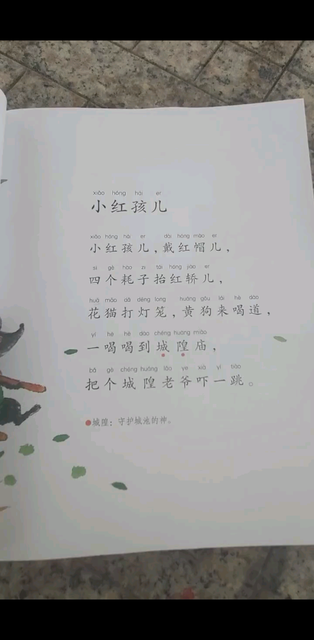 xiǎo hóng hái ér
小红孩儿
xiǎo hóng hái ér dài hóng mào ér
小红孩儿，戴红帽儿，
sì gè hào zi tái hóng jiào ér
四个耗子抬红轿儿，
huā māo dǎ dēng lóng huáng gǒu lái hè dào
花猫打灯笼，黄狗来喝道，
yì hè hè dào chéng huáng miào
一喝喝到城隍庙，
bǎ gè chéng huáng lǎo ye xià yí tiào
把个城隍老爷吓一跳。
城隍：守护城池的神。